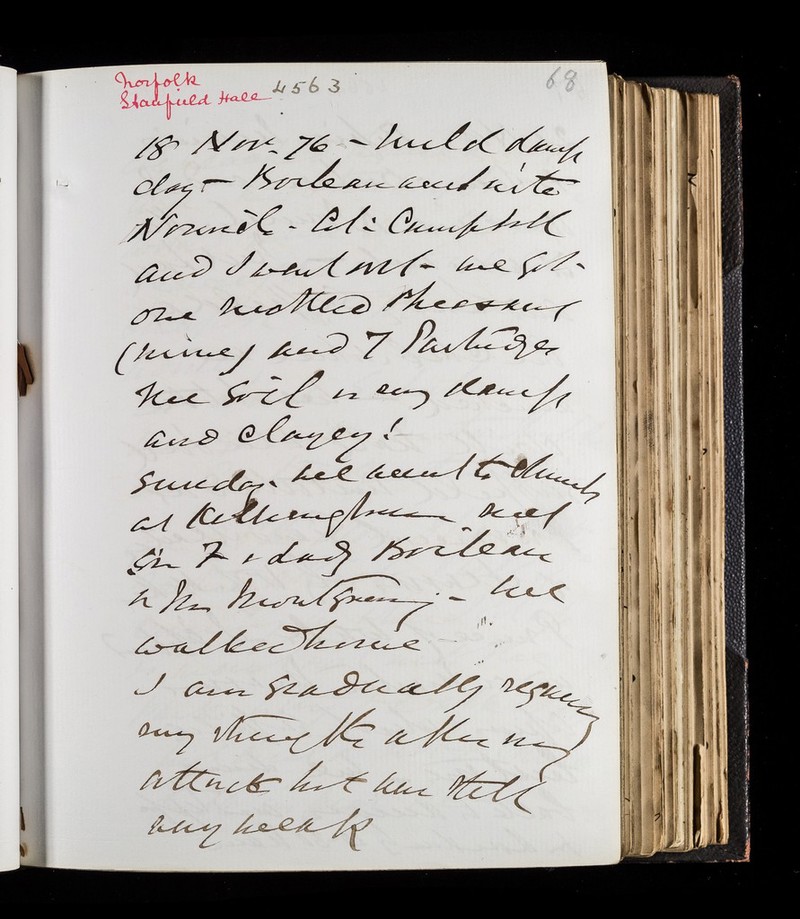 Norfolk
Stanfield Hall
4563
68
18 Nov. 76 - Mild damp
day - Boileau went into
Norwich - Col: Campbell
and I went out - we got
one mottled Pheasant
(mine) and 7 Partridges
The soil is very damp
and clayey!
Sunday. We went to Church
at Ketteringham met
Sir F & Lady Boileau
Montgomery - We
walked home
I am gradually regaining
my strength after my
attack but am still
very weak